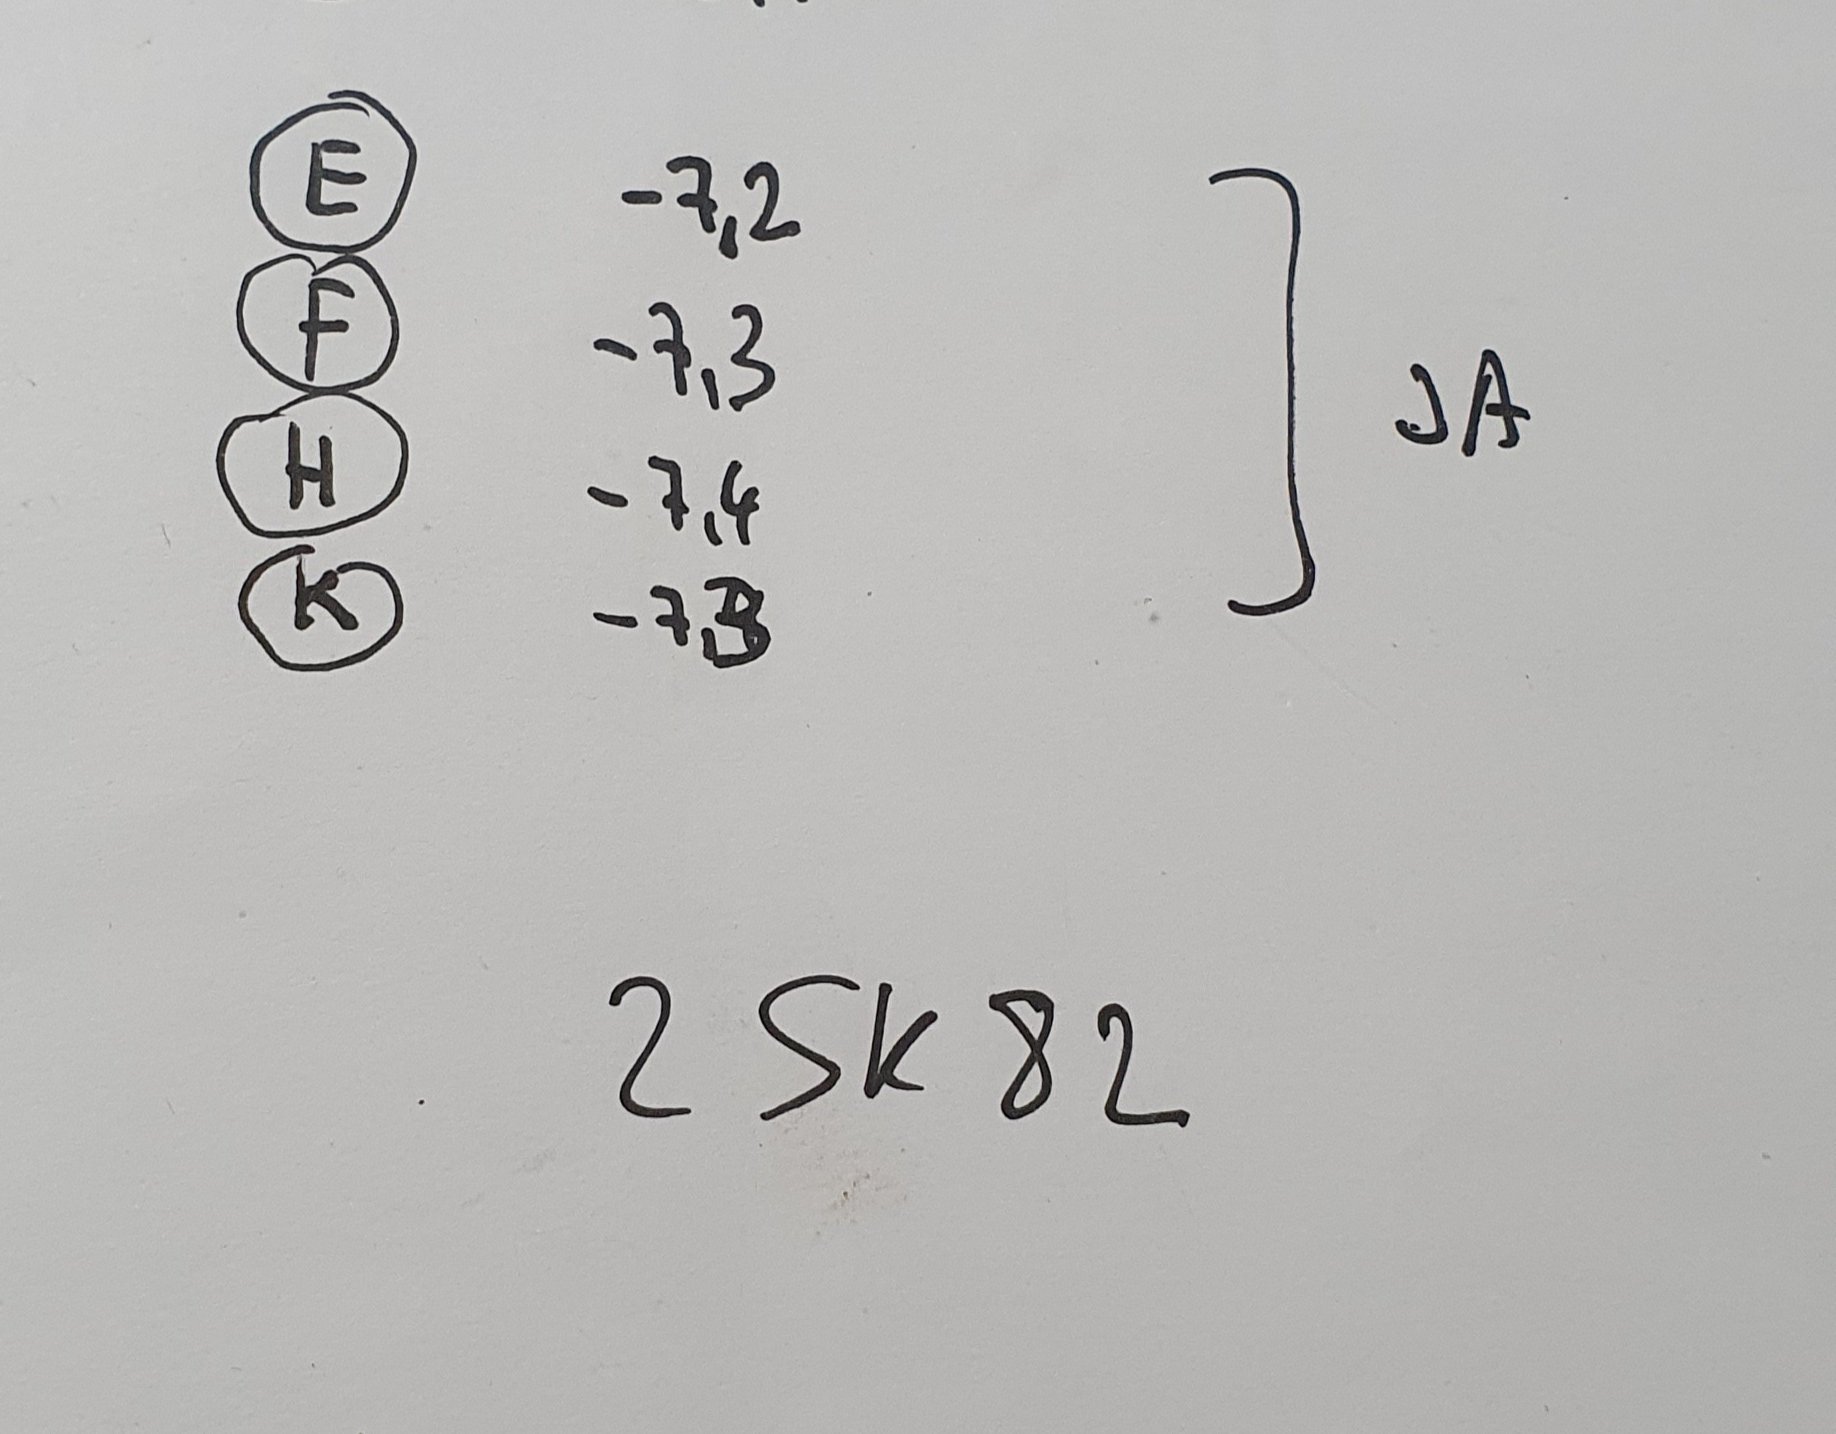 E -7,2
F -7,3
H -7,4 JA
K -7,3
2SK82